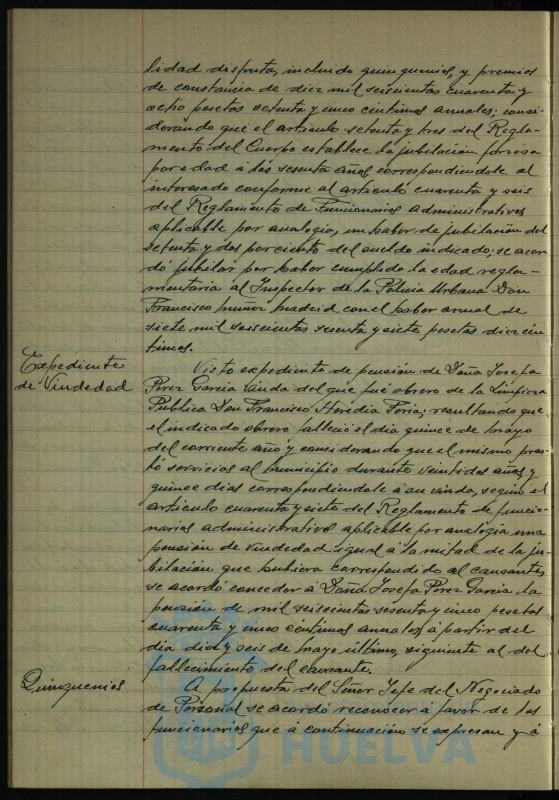 lidad disfruta, incluido quinquenios, y premios
de constancia de diez mil seiscientas cuarenta y
ocho pesetas setenta y cinco centimos anuales; consi-
derando que el articulo setenta y tres del Regla-
mento del Cuerpo establece la jubilación forzosa
por edad á los sesenta años correspondiendole al
interesado conforme al articulo cuarenta y seis
del Reglamento de Funcionarios Administrativos
aplicable por analogia, un haber de jubilación del
setenta y dos por ciento del sueldo indicado; se acor
dó jubilar por haber cumplido la edad regla-
mentaria al Inspector de la Policia Urbana Don
Francisco Muñoz Madrid con el haber anual de
siete mil seiscientas sesenta y siete pesetas diez cén
timos.
Expediente
de Viudedad
Visto expediente de pensión de Doña Josefa
Perez Garcia Viuda del que fué obrero de la Limpieza
Publica Don Francisco Heredia Feria; resultando que
el indicado obrero falleció el dia quince de Mayo
del corriente año y considerando que el mismo pres-
tó servicios al Municipio durante veintidos años y
quince dias correspondiendole á su viuda, según el
articulo cuarenta y siete del Reglamento de funcio-
narios administrativos aplicable por analogia una
pensión de Viudedad igual á la mitad de la ju-
bilación que hubiera correspondido al causante,
se acordó conceder á Doña Josefa Perez Garcia la
pensión de mil seiscientas sesenta y cinco pesetas
cuarenta y cinco céntimos anuales, á partir del
dia diez y seis de Mayo último, siguiente al del
fallecimiento del causante.
Quinquenios
A propuesta del Señor Jefe del Negociado
de Personal se acordó reconocer á favor de los
funcionarios que á continuación se expresan y á
HUELVA